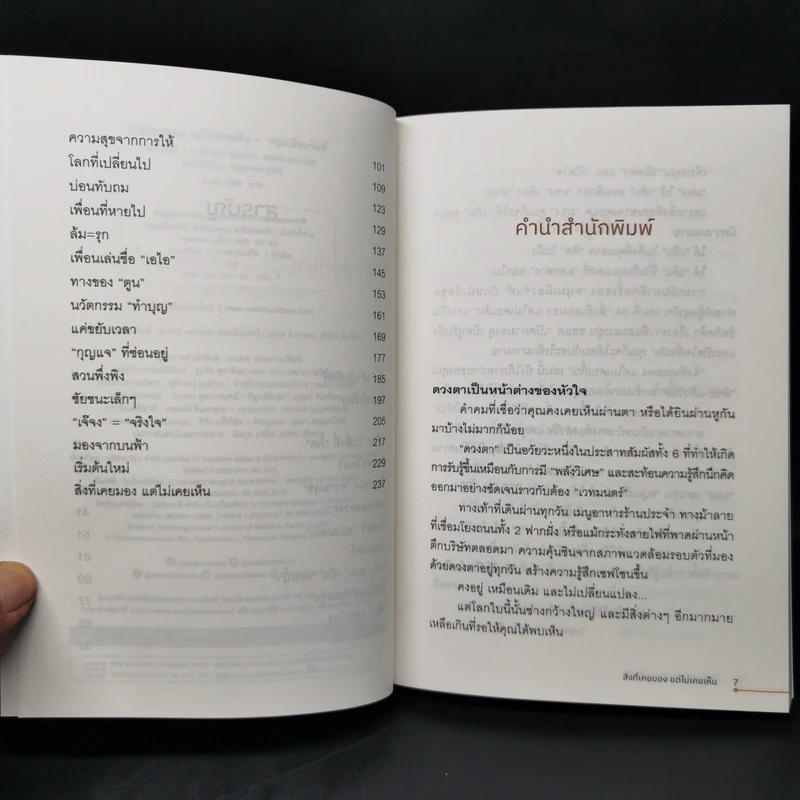 ความสุขจากการให้
โลกที่เปลี่ยนไป 101
บ่อนทับถม 109
เพื่อนที่หายไป 123
ล้ม=รุก 129
เพื่อนเล่นชื่อ “เอไอ” 137
ทางของ “ตูน” 145
นวัตกรรม “ทำบุญ” 153
แค่ขยับเวลา 161
“กุญแจ” ที่ซ่อนอยู่ 169
สวนพึ่งพิง 177
ชัยชนะเล็กๆ 185
“เจ๊จง” = “จริงใจ” 197
มองจากบนฟ้า 205
เริ่มต้นใหม่ 217
สิ่งที่เคยมอง แต่ไม่เคยเห็น 229
237
คำนำสำนักพิมพ์
ดวงตาเป็นหน้าต่างของหัวใจ
คำคมที่เชื่อว่าคุณคงเคยเห็นผ่านตา หรือได้ยินผ่านหูกัน
มาบ้างไม่มากก็น้อย
“ดวงตา” เป็นอวัยวะหนึ่งในประสาทสัมผัสทั้ง 6 ที่ทำให้เกิด
การรับรู้ขึ้นเหมือนกับการมี “พลังวิเศษ” และสะท้อนความรู้สึกนึกคิด
ออกมาอย่างชัดเจนราวกับต้อง “เวทมนตร์”
ทางเท้าที่เดินผ่านทุกวัน เมนูอาหารร้านประจำ ทางม้าลาย
ที่เชื่อมโยงถนนทั้ง 2 ฟากฝั่ง หรือแม้กระทั่งสายไฟที่พาดผ่านหน้า
ตึกบริษัทตลอดมา ความคุ้นชินจากสภาพแวดล้อมรอบตัวที่มอง
ด้วยดวงตาอยู่ทุกวัน สร้างความรู้สึกเซฟโซนขึ้น
คงอยู่ เหมือนเดิม และไม่เปลี่ยนแปลง...
แต่โลกใบนี้นั้นช่างกว้างใหญ่ และมีสิ่งต่างๆ อีกมากมาย
เหลือเกินที่รอให้คุณได้พบเห็น
สิ่งที่เคยมอง แต่ไม่เคยเห็น 7